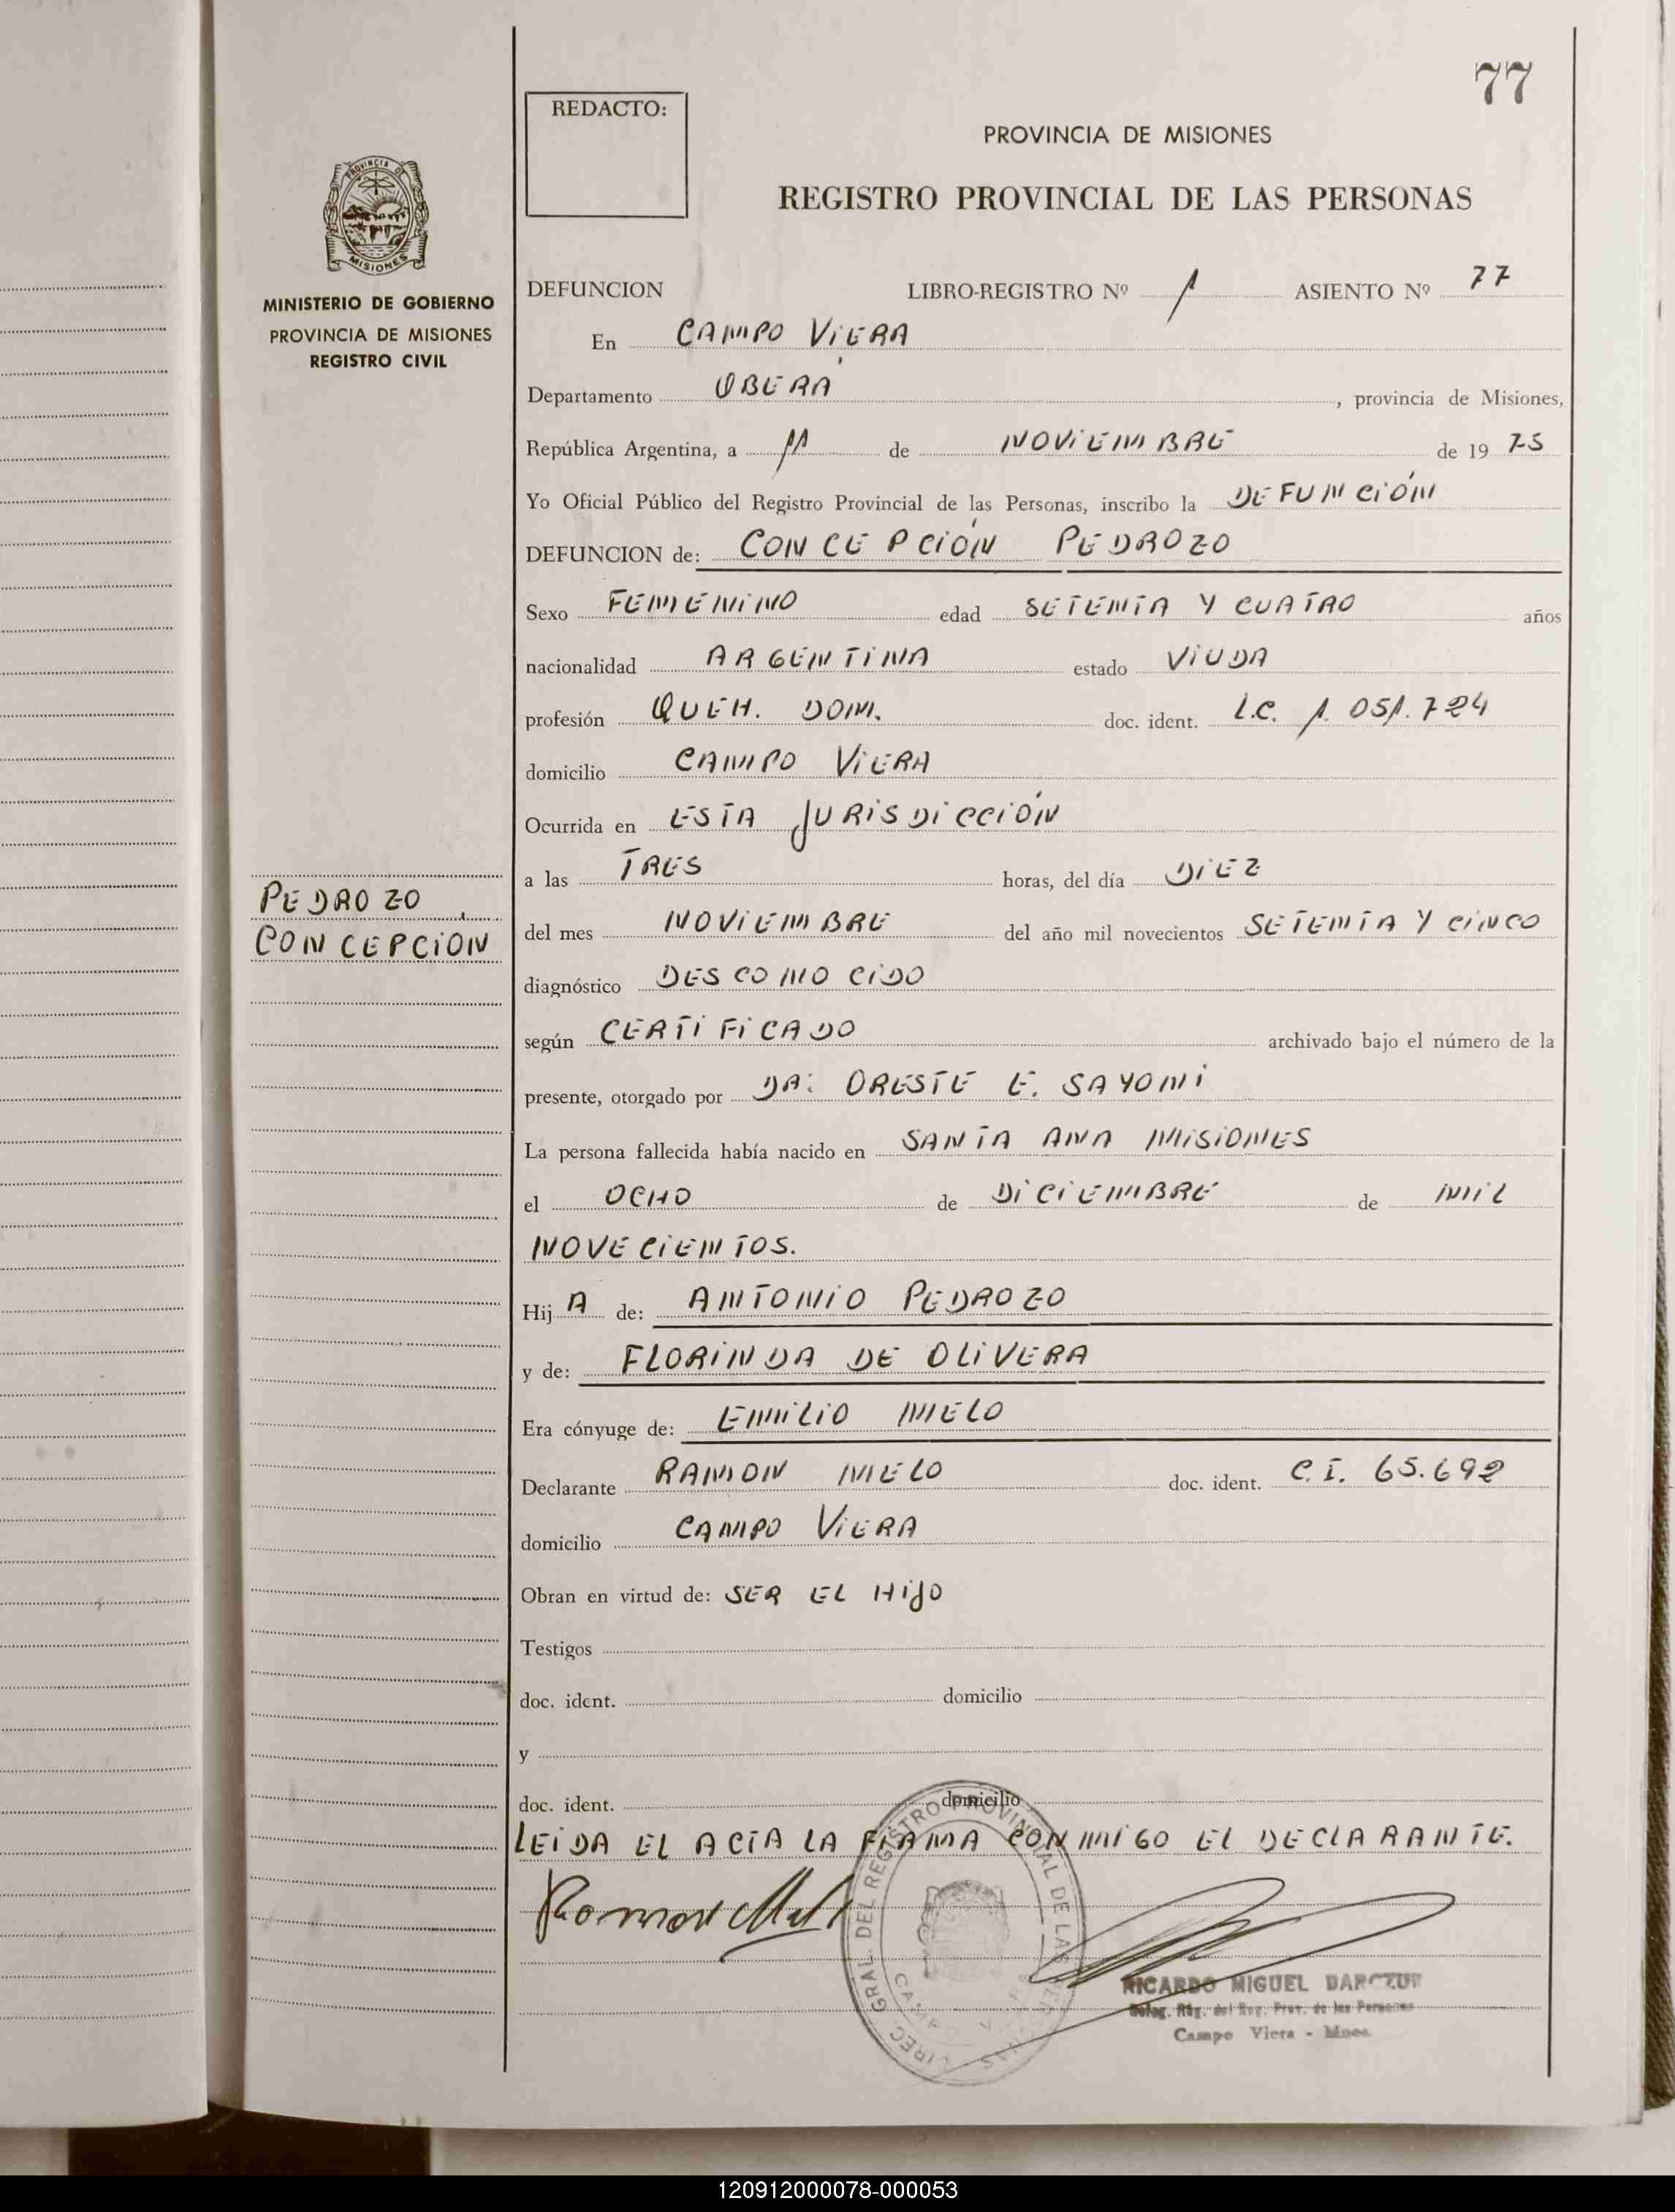 77
REDACTO:
PROVINCIA DE MISIONES
REGISTRO PROVINCIAL DE LAS PERSONAS
PROVINCIA DE
MISIONES
MINISTERIO DE GOBIERNO
PROVINCIA DE MISIONES
REGISTRO CIVIL
DEFUNCION LIBRO-REGISTRO Nº 1 ASIENTO Nº 77
En CAMPO VIERA
Departamento OBERÁ, provincia de Misiones,
República Argentina, a 11 de NOVIEMBRE de 1975
Yo Oficial Público del Registro Provincial de las Personas, inscribo la DEFUNCIÓN
DEFUNCION de: CONCEPCIÓN PEDROZO
Sexo FEMENINO edad SETENTA Y CUATRO años
nacionalidad ARGENTINA estado VIUDA
profesión QUEH. DOM. doc. ident. L.C. 1.051.724
domicilio CAMPO VIERA
Ocurrida en ESTA JURISDICCIÓN
a las TRES horas, del día DIEZ
PEDROZO
CONCEPCIÓN
del mes NOVIEMBRE del año mil novecientos SETENTA Y CINCO
diagnóstico DESCONOCIDO
según CERTIFICADO archivado bajo el número de la
presente, otorgado por DR: ORESTE E. SAYONI
La persona fallecida había nacido en SANTA ANA MISIONES
el OCHO de DICIEMBRE de MIL
NOVECIENTOS.
Hij A de: ANTONIO PEDROZO
y de: FLORINDA DE OLIVERA
Era cónyuge de: EMILIO MELO
Declarante RAMON MELO doc. ident. C.I. 65.692
domicilio CAMPO VIERA
Obran en virtud de: SER EL HIJO
Testigos
doc. ident. domicilio
y
doc. ident. domicilio
LEIDA EL ACTA LA FIRMA CONMIGO EL DECLARANTE.
Ramon Melo
DIREC. GRAL. DEL REGISTRO PROVINCIAL DE LAS PERSONAS
CAMPO VIERA
RICARDO MIGUEL
Deleg. Reg. del Reg. Prov. de las Personas
Campo Viera - Mnes.
120912000078-000053